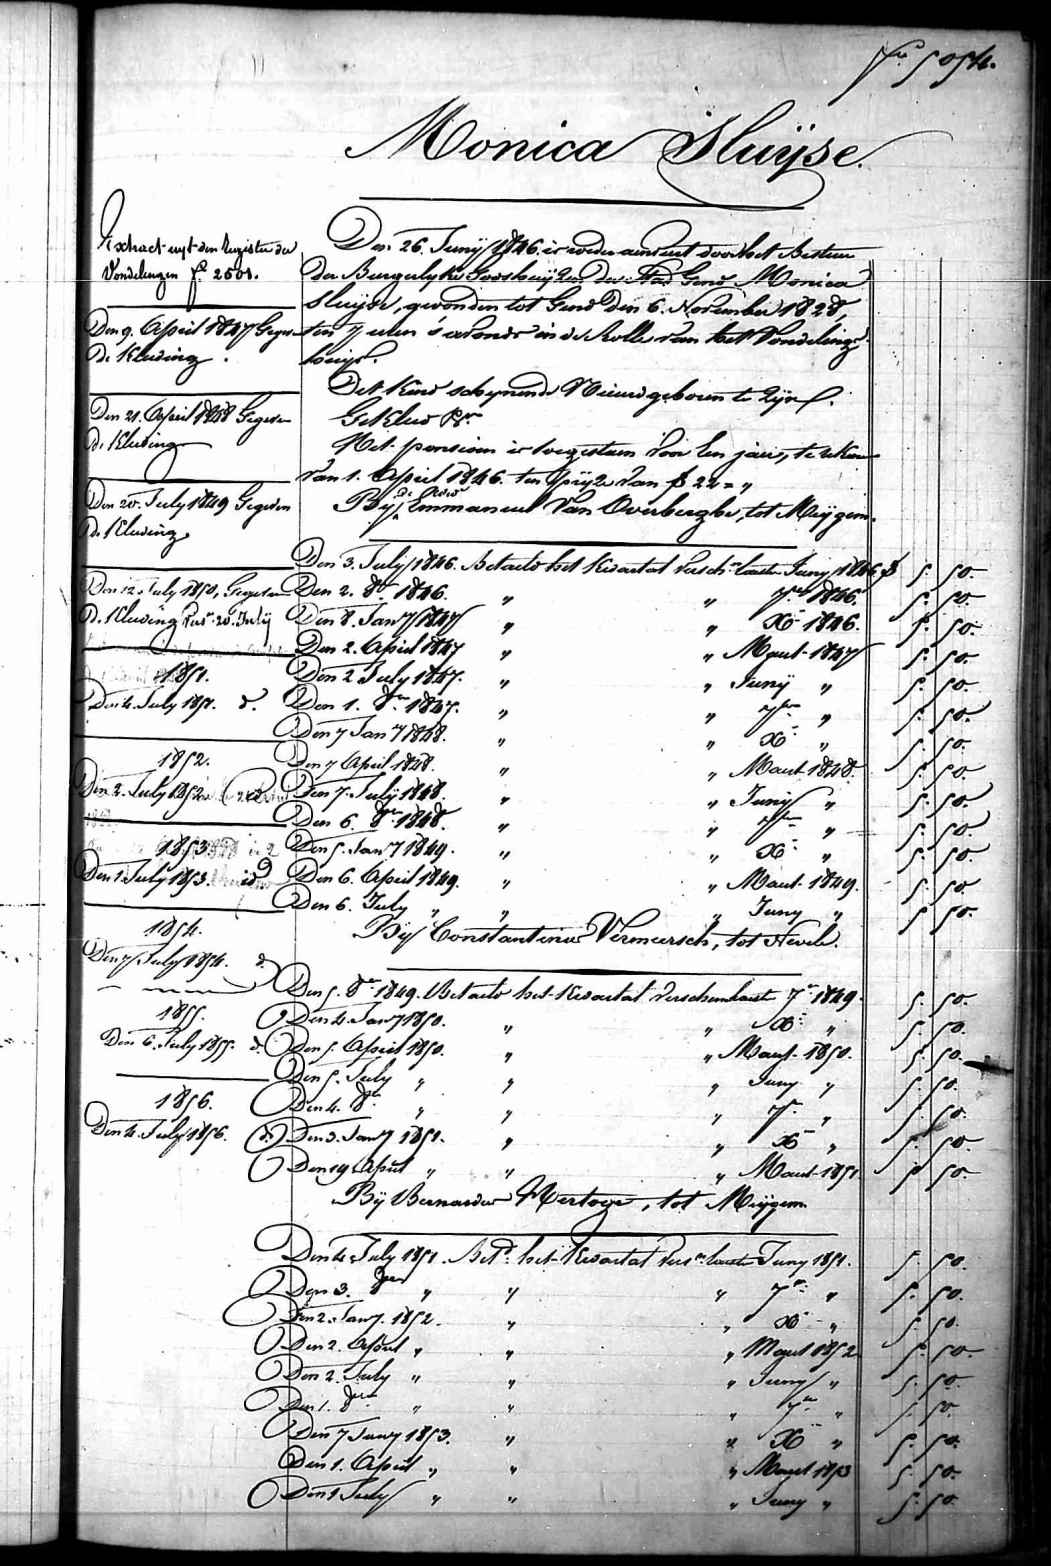 fo 5054.
Monica Sluÿse.
Extract uyt den Register der
Vondelingen fo 2601.
Den 9. April 1847 Gegeven
De Kleeding.
Den 21. April 1848 Gegeven
De Kleeding
Den 20. July 1849 Gegeven
De Kleeding.
Den 12. July 1850, Gegeven
De Kleeding
1851.
Den 4. July 1851. d.
1852.
Den 2. July 1852
1853.
Den 1. July 1853. id
1854.
Den 7 July 1854. d.
1855.
Den 6. July 1855. d.
1856.
Den 4. July 1856. d.
Den 26. Junÿ 1846. is door het Bestuur
Der Burgerlyke Godshuÿzen der Stad Gend Monica
Sluÿse, gevonden tot Gend Den 6. November 1828,
ten 7 uren s'avonds in de Rolle van het Vondeling-
huÿs.
Dit Kind schynende Nieuwgeboren te Zÿn
Gekleed
Het pensioen is toegestaen voor Een jaer, te rekenen
van 1. April 1846. ten prÿze van 22 = "
Bÿ de Wed. Emmanuel Van Overberghe, tot Meÿgem.
Den 3. July 1846. Betaeld het Kwartael versch. laest Juny 1846 5. 50.
Den 2. 8er 1846. " " 7er 1846. 5. 50.
Den 8. Jany 1847 " " Xr 1846. 5. 50.
Den 2. April 1847 " " Maart 1847 5. 50.
Den 2 July 1847. " " Junÿ " 5. 50.
Den 1. 8er 1847. " " 7er " 5. 50.
Den 7 Jany 1848. " " Xr " 5. 50.
Den 7 April 1848. " " Maart 1848. 5. 50.
Den 7. July 1848. " " Juny " 5. 50.
Den 6. 8er 1848. " " 7er " 5. 50.
Den 5. Jany 1849. " " Xr " 5. 50.
Den 6. April 1849. " " Maart 1849. 5. 50.
Den 6. July " " " Juny " 5 50.
Bÿ Constantinus Vermeersch, tot Nevele.
Den 5. 8er 1849. Betaeld het Kwartael verschenen laest 7er 1849. 5. 50.
Den 4. Jany 1850. " " Xr " 5. 50.
Den 5. April 1850. " " Maart 1850. 5. 50.
Den 5. July " " " Juny " 5. 50.
Den 4. 8er " " " 7er " 5. 50.
Den 3. Jany 1851. " " Xr " 5. 50.
Den 19 April " " " Maart 1851 5 50.
Bÿ Bernardus Hertoge, tot Meÿgem.
Den 4. July 1851. Bet. het Kwartael versn laest Juny 1851. 5. 50.
Den 3. 8er " " " 7er " 5. 50.
Den 2. Jany. 1852. " " Xr " 5. 50.
Den 2. April " " " Maart 1852 5. 50.
Den 2. July " " " Juny " 5. 50.
Den 1. 8er " " " 7er " 5. 50.
Den 7 Jany 1853. " " Xr " 5. 50.
Den 1. April " " " Maart 1853 5. 50.
Den 1 July " " " Juny " 5. 50.